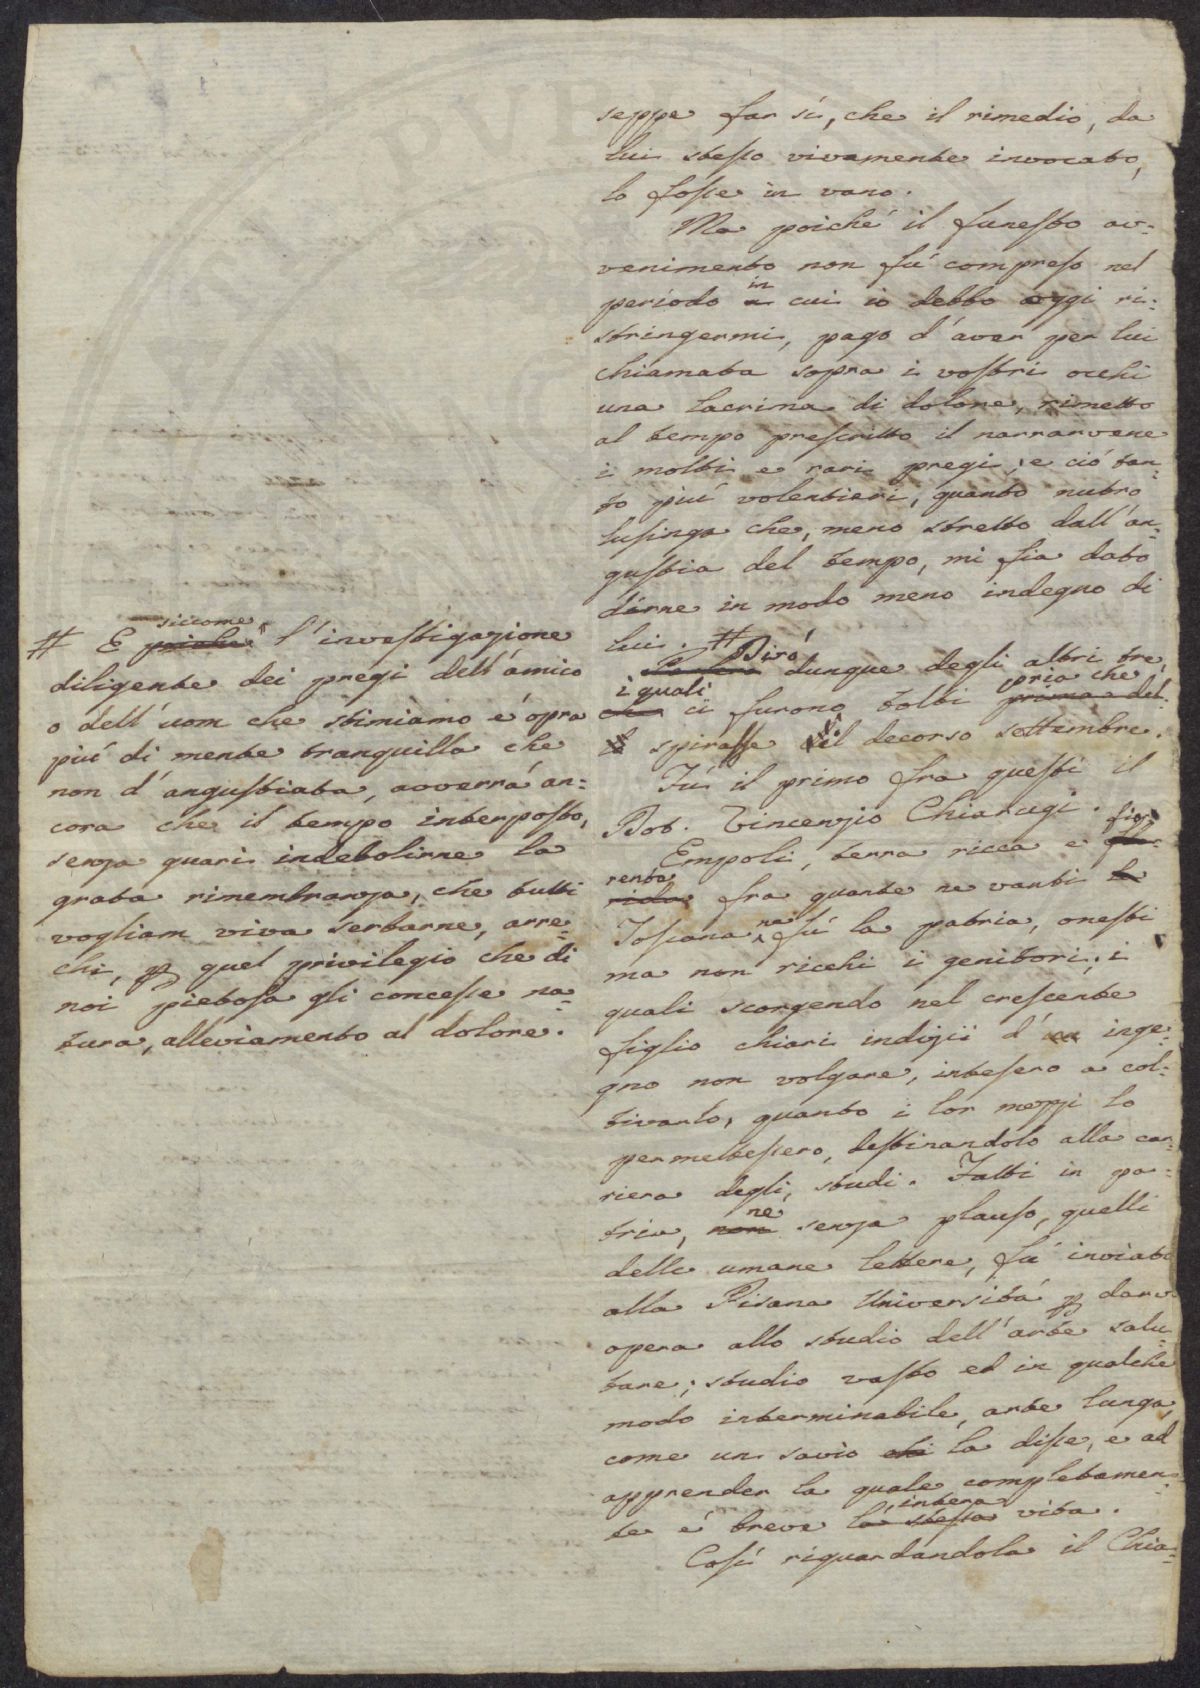 seppe far sì, che il rimedio, da
lui stesso vivamente invocato,
lo fosse in vano.
Ma poiché il funesto av=
venimento non fú compreso nel
in
periodo a cui io debbo oggi ri=
stringermi, pago d'aver per lui
chiamata sopra i vostri occhi
una lacrima di dolore, rimetto
al tempo prescritto il narrarvene
i molti e rari pregi; e ció tan=
to piú volentieri, quanto nutro
lusinga che, meno stretto dall'an=
gustia del tempo, mi sia dato
dirne in modo meno indegno di
lui. #
Diró
dunque degli altri tre,
i quali pria che
che ci furono tolti prima del=
lo spirasse il decorso settembre.
Fú il primo fra questi il
Dot. Vincenzio Chiarugi.
fio=
Empoli, terra ricca e flo=
renta
rida fra quante ne vanti la
Toscana, ne fú la patria, onesti
ma non ricchi i genitori; i
quali scorgendo nel crescente
figlio chiari indizii d'un inge=
gno non volgare, intesero a col=
tivarlo, quanto i lor mezzi lo
permettessero, destinandolo alla car=
riera degli studi. Fatti in pa=
ne
tria, non senza plauso, quelli
delle umane lettere, fú inviato
alla Pisana Università p darvi
opera allo studio dell'arte salu=
tare; studio vasto ed in qualche
modo interminabile, arte lunga,
come un savio chi la disse, e ad
apprender la quale completamen=
intera
te é breve la stessa vita.
Cosí riguardandola il Chia=
siccome
# E poiche l'investigazione
diligente dei pregi dell'amico
o dell'uom che stimiamo é opra
piú di mente tranquilla che
non d'angustiata, avverrá an=
cora che il tempo interposto,
senza guari indebolirne la
grata rimembranza, che tutti
vogliam viva serbarne, arre=
chi, p quel privilegio che di
noi pietosa gli concesse na=
tura, alleviamento al dolore.